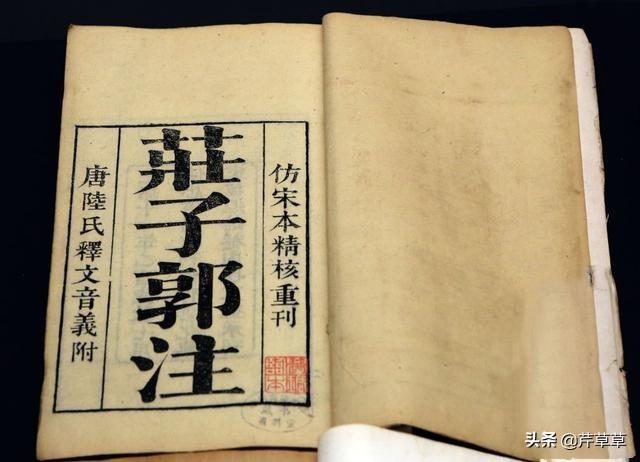 仿宋本精核重刊
莊子郭注
唐陸氏釋文音義附
头条 @芹草草